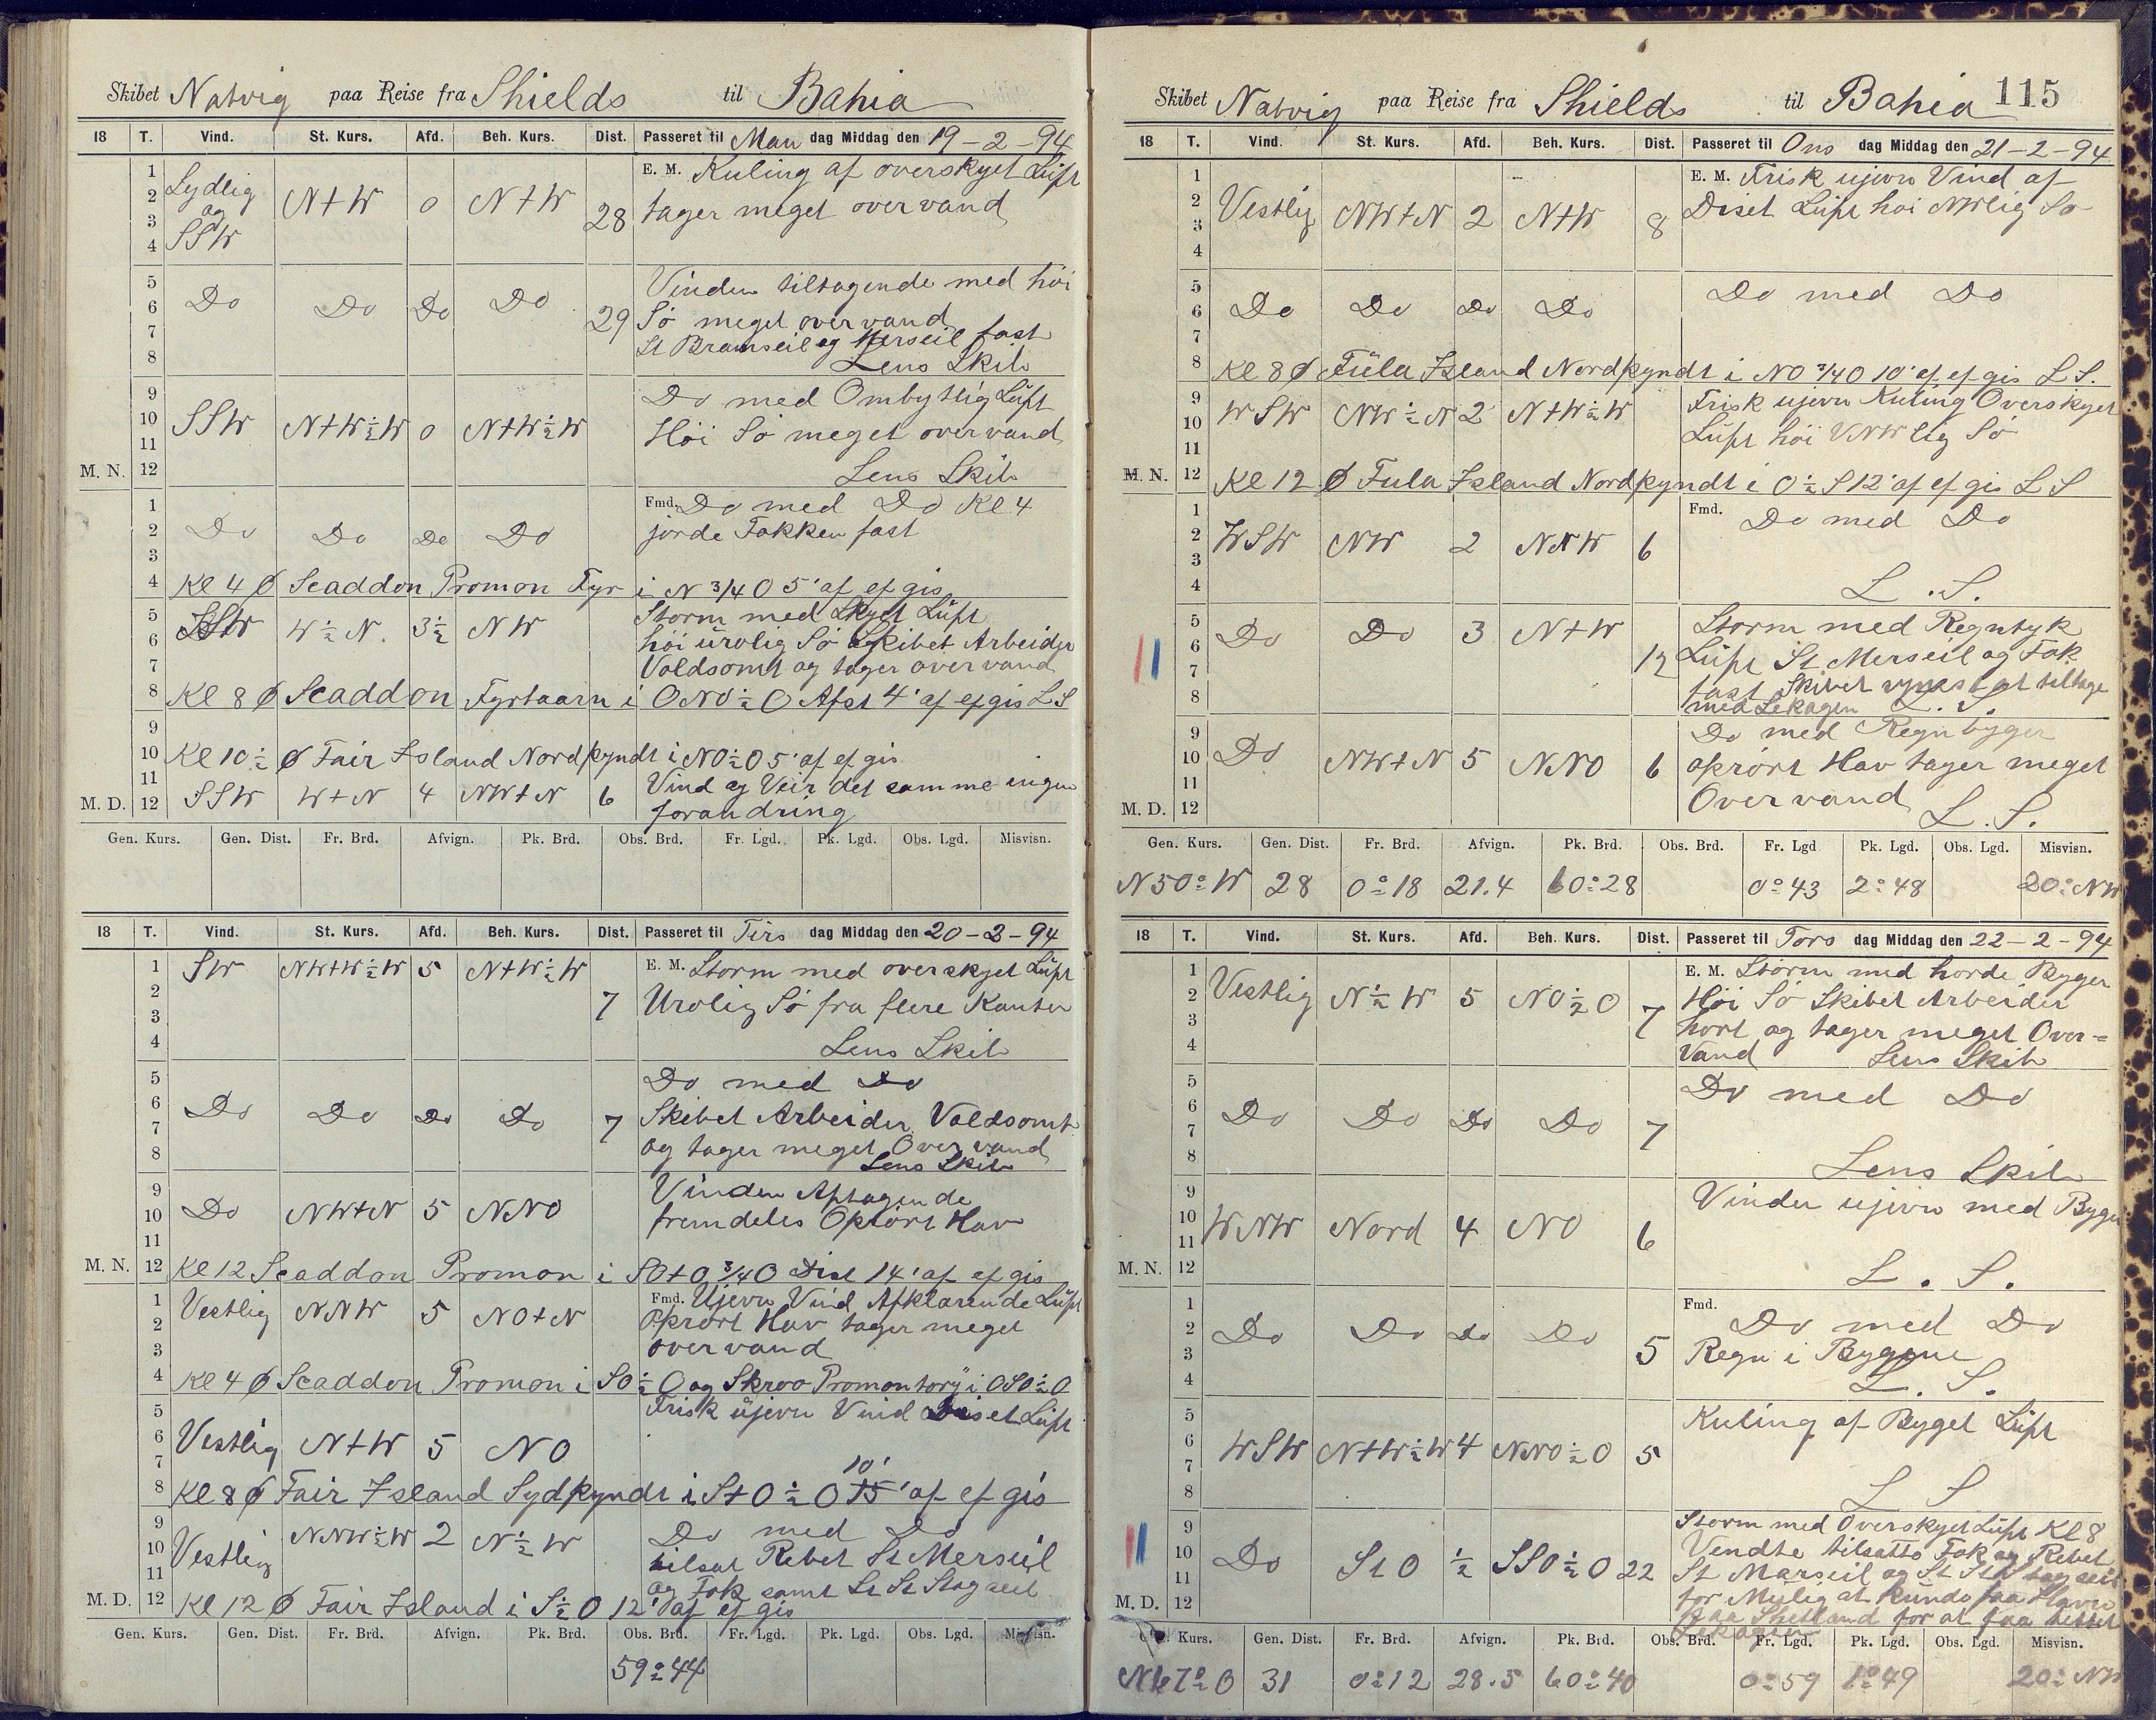 Skibet Natvig paa Reise fra Shields til Bahia
18 T. Vind. St. Kurs. Afd. Beh. Kurs. Dist. Passeret til Man dag Middag den 19-2-94
1 E. M. Kuling af overskyet Luft
2 Sydlig N+W 0 N+W 28 tager meget over vand
3 og
4 SSW
5 Vinden tiltagende med höi
6 Do Do Do Do 29 Sö meget over vand
7 St Bramseil og Merseil fast
8 Lens Skib
9 Do med Ombytlig Luft
10 SSW N+W½W 0 N+W½W Höi Sö meget over vand
11
M. N. 12 Lens Skib
1 Fmd. Do med Do Kl 4
2 Do Do Do Do jorde Fokken fast
3
4 Kl 4 Ø Scaddon Promon Fyr i N 3/4 O 5' af ef gis
5 SSW W½N. 3½ NW Storm med Skyet Luft
6 höi urolig Sö Skibet Arbeider
7 Voldsomt og tager over vand
8 Kl 8 Ø Scaddon Fyrtaarn i ONO½O Afst 4' af ef gis L S
9
10 Kl 10½ Ø Fair Island Nordpyndt i NO½O 5' af ef gis
11 Vind og Veir det samme ingen
M. D. 12 SSW W+N 4 NW+N 6 forandring
Gen. Kurs. Gen. Dist. Fr. Brd. Afvign. Pk. Brd. Obs. Brd. Fr. Lgd. Pk. Lgd. Obs. Lgd. Misvisn.
18 T. Vind. St. Kurs. Afd. Beh. Kurs. Dist. Passeret til Tirs dag Middag den 20-2-94
1 SW NW+W½W 5 N+W½W E. M. Storm med overskyet Luft
2 7 Urolig Sö fra flere Kanter
3
4 Lens Skib
5 Do med Do
6 Do Do Do Do 7 Skibet Arbeider Voldsomt
7 og tager meget Over vand
8 Lens Skib
9 Vinden Aftagende
10 Do NW+N 5 NNO fremdeles Oprört Hav
11
M. N. 12 Kl 12 Scaddon Promon i SO+O 3/4 O Dist 14' af ef gis
1 Vestlig NNW 5 NO+N Fmd. Ujevn Vind Afklarende Luft
2 Oprört Hav tager meget
3 over vand
4 Kl 4 Ø Scaddon Promon i SO½O og Skroo Promontory i OSO½O
5 Frisk ujevn Vind Diset Luft
6 Vestlig N+W 5 NO
7 10'
8 Kl 8 Ø Fair Island Sydpyndt i S+O½O 15' af ef gis
9 NNW½W 2 N½W Do med Do
10 Vestlig tilsat Rebet St Merseil
11 og Fok samt St St Stagseil
M. D. 12 Kl 12 Ø Fair Island i S½O 12' af ef gis
Gen. Kurs. Gen. Dist. Fr. Brd. Afvign. Pk. Brd. Obs. Brd. Fr. Lgd. Pk. Lgd. Obs. Lgd. Misvisn.
59°44
Skibet Natvig paa Reise fra Shields til Bahia 115
18 T. Vind. St. Kurs. Afd. Beh. Kurs. Dist. Passeret til Ons dag Middag den 21-2-94
1 E. M. Frisk ujevn Vind af
2 Vestlig NW+N 2 N+W 8 Diset Luft höi NWlig Sö
3
4
5 Do med Do
6 Do Do Do Do
7
8 Kl 8 Ø Fula Island Nordpyndt i NO 3/4 O 10' af ef gis L S.
9 Frisk ujevn Kuling Overskyet
10 WSW NW½N 2 N+W½W Luft höi VNWlig Sö
11
M. N. 12 Kl 12 Ø Fula Island Nordpyndt i O½S 12' af ef gis L S
1 Fmd. Do med Do
2 WSW NW 2 NNW 6
3
4 L. S.
5 Storm med Regntyk
6 Do Do 3 N+W 12 Luft St Merseil og Fok
7 fast Skibet synes at tiltage
8 med Lekagen L. S.
9 Do med Regn byger
10 Do NW+N 5 NNO 6 oprört Hav tager meget
11 Over vand
M. D. 12 L. S.
Gen. Kurs. Gen. Dist. Fr. Brd. Afvign. Pk. Brd. Obs. Brd. Fr. Lgd Pk. Lgd. Obs. Lgd. Misvisn.
N 50° W 28 0°18 21.4 60°28 0°43 2°48 20° NW
18 T. Vind. St. Kurs. Afd. Beh. Kurs. Dist. Passeret til Tors dag Middag den 22-2-94
1 E. M. Storm med horde Byger
2 Vestlig N½W 5 NO½O 7 Höi Sö Skibet Arbeider
3 hort og tager meget Over=
4 Vand Lens Skib
5 Do med Do
6 Do Do Do Do 7
7
8 Lens Skib
9 Vinden ujevn med Byger
10 WNW Nord 4 NO 6
11
M. N. 12 L. S.
1 Fmd. Do med Do
2 Do Do Do Do 5
3 Regn i Bygene
4 L. S.
5 Kuling af Byget Luft
6 WSW N+W½W 4 NNO½O 5
7
8 L S
9 Storm med Overskyet Luft Kl 8
10 Vendte tilsatte Fok og Rebet
11 Do StO ½ SSO½O 22 St Marseil og St St Stag seil
M. D. 12 for Mulig at kunde faa Havn
paa Shetland for at faa tettet
Lekagen
Kurs. Gen. Dist. Fr. Brd. Afvign. Pk. Brd. Obs. Brd. Fr. Lgd. Pk. Lgd. Obs. Lgd. Misvisn.
N 67° O 31 0°12 28.5 60°40 0°59 1°49 20° NW